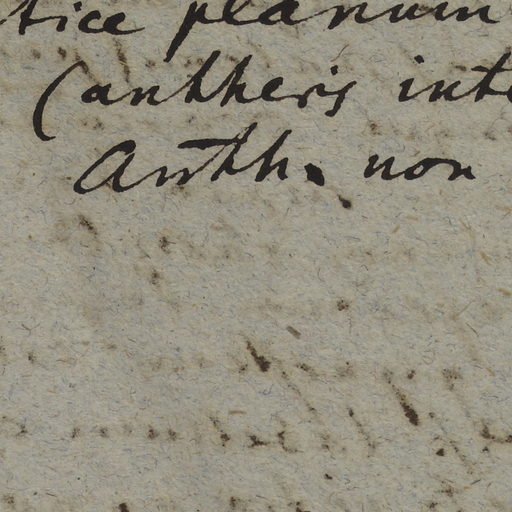 tice planum
(antheris inte
Anth. non